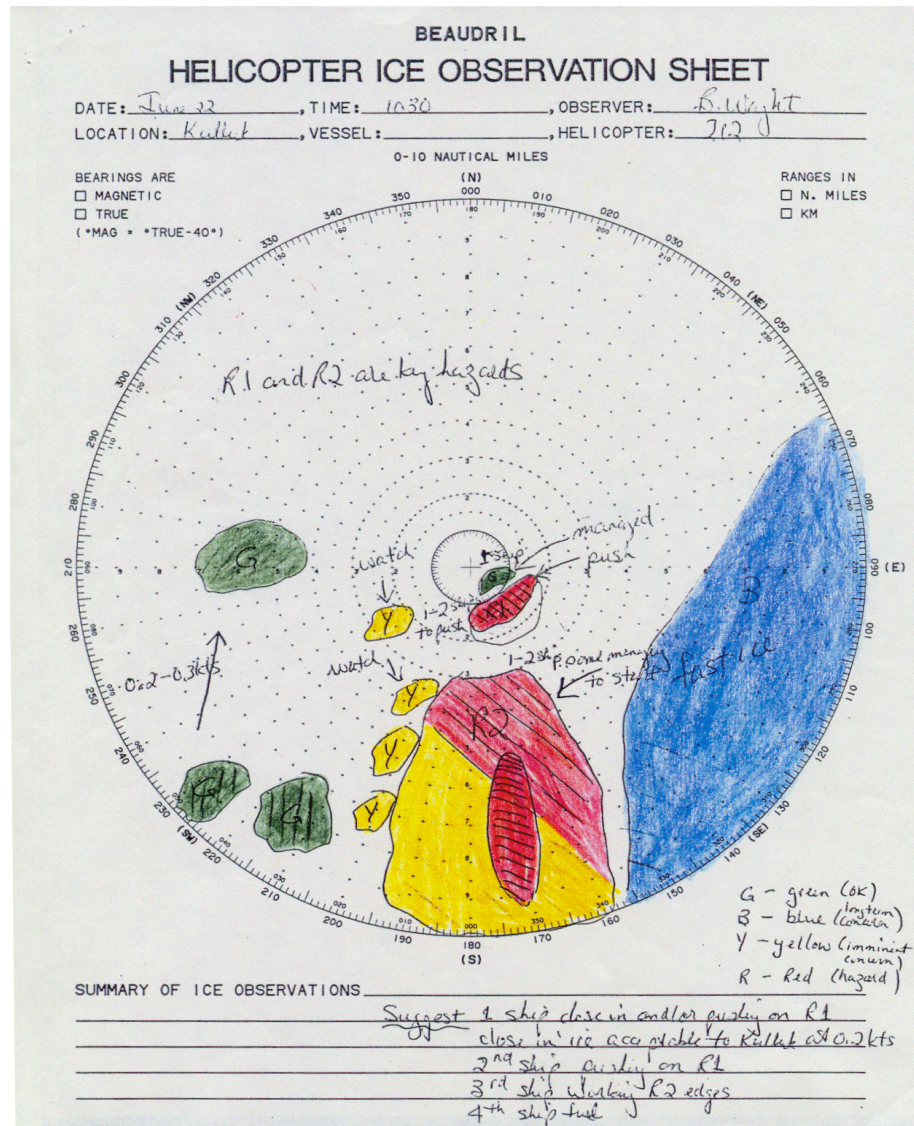 BEAUDRIL
HELICOPTER ICE OBSERVATION SHEET
DATE: June 22, TIME: 1030, OBSERVER: B. Wright
LOCATION: Kulluk, VESSEL:, HELICOPTER: 212
0-10 NAUTICAL MILES
BEARINGS ARE
☐ MAGNETIC
☐ TRUE
(°MAG = °TRUE-40°)
RANGES IN
☐ N. MILES
☐ KM
(N)
000
010
020
030
040
(NE)
050
060
070
080
090
(E)
100
110
120
130
(SE)
140
150
160
170
180
(S)
190
200
210
220
(SW)
230
240
250
260
270
280
290
300
310
(NW)
320
330
340
350
R1 and R2 are key hazards
G
watch
Y
1 ship
managed
push
1-2 ships
to push
B
fast ice
0.2-0.3kts
watch
Y
1-2 ships
to start
R2
Y
Y
G
G
G - green (OK)
B - blue (longterm concern)
Y - yellow (imminent concern)
R - Red (hazard)
SUMMARY OF ICE OBSERVATIONS
Suggest 1 ship close in and/or pushing on R1
close in ice acceptable to Kulluk at 0.2kts
2nd ship pushing on R1
3rd ship working R2 edges
4th ship fuel